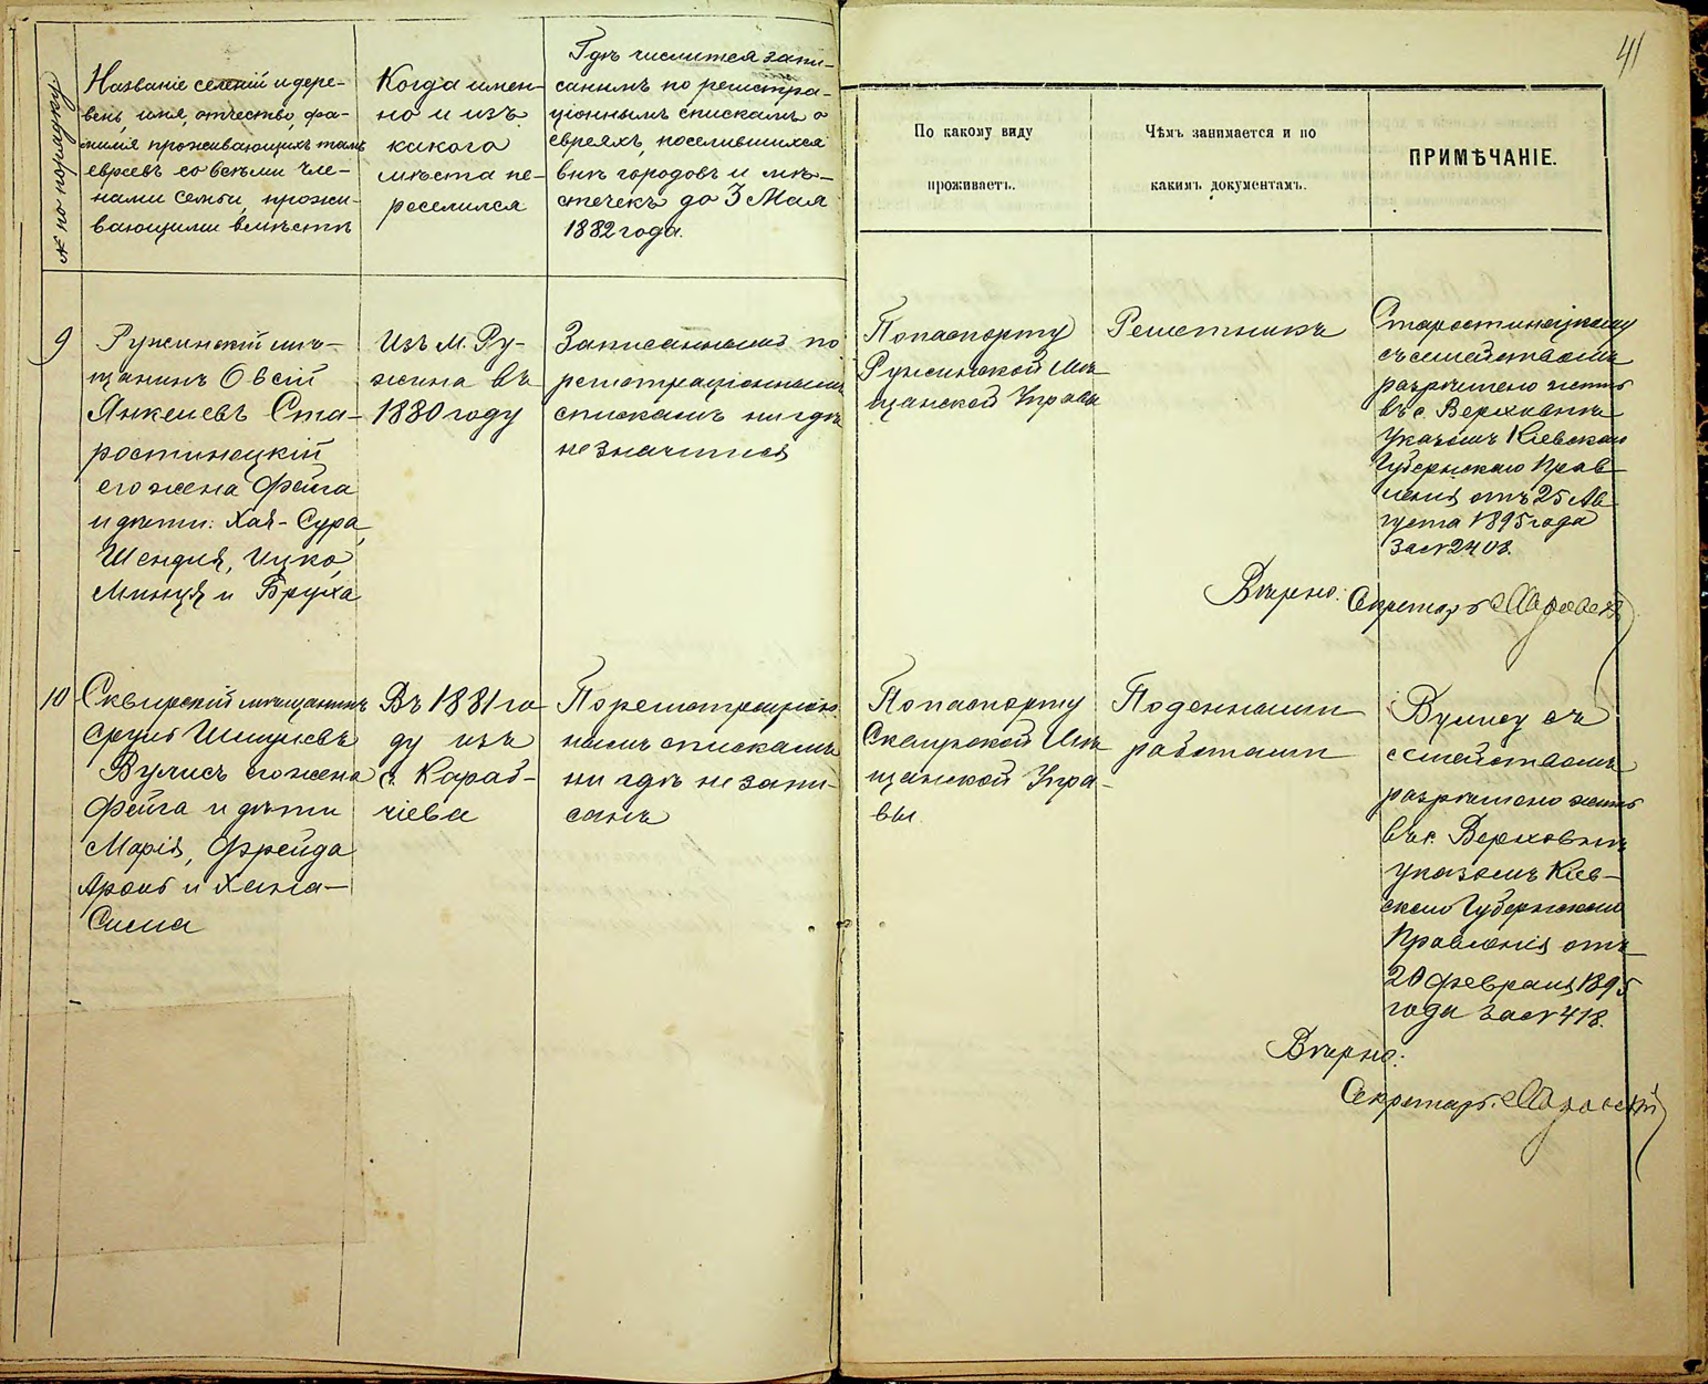 41
№ по порядку
Названіе селеній и дере-
вень, имя, отчество, фа-
милія проживающихъ тамъ
евреевъ со всѣми чле-
нами семьи, прожи-
вающими вмѣстѣ
Когда имен-
но и изъ
какого
мѣста пе-
реселился
Гдѣ числится запи-
саннымъ по регистра-
ціоннымъ спискамъ о
евреяхъ, поселившихся
внѣ городовъ и мѣ-
стечекъ до 3 Мая
1882 года.
По какому виду
проживаетъ.
Чѣмъ занимается и по
какимъ документамъ.
ПРИМѢЧАНІЕ.
9
Ружинскій мѣ-
щанинъ Овсій
Янкелевъ Ста-
ростинецкій
его жена Фейга
и дѣти: Хая-Сура,
Шендля, Ицко,
Минця и Бруха
Изъ м. Ру-
жина въ
1880 году
Записаннымъ по
регистраціоннымъ
спискамъ нигдѣ
не значится
По паспорту
Ружинской Мѣ-
щанской Управы
Решетникъ
Старостинецкому
съ семействомъ
разрѣшено жить
въ с. Верховнѣ
указомъ Кіевскаго
Губернскаго Прав-
ленія отъ 25 Ав-
густа 1895 года
за № 2408.
Вѣрно: Секретарь
10
Сквирскій мѣщанинъ
Сруль Шмулевъ
Вулисъ его жена
Фейга и дѣти
Марія, Фрейда
Аронъ и Хана-
Сима
Въ 1881 го-
ду изъ
с. Караб-
чіева
По регистраціон-
нымъ спискамъ
ни гдѣ не запи-
санъ
По паспорту
Сквирской Мѣ-
щанской Упра-
вы
Поденными
работами
Вулису съ
семействомъ
разрѣшено жить
въ с. Верховнѣ
указомъ Кіев-
скаго Губернскаго
Правленія отъ
20 февраля 1895
года за № 418.
Вѣрно:
Секретарь